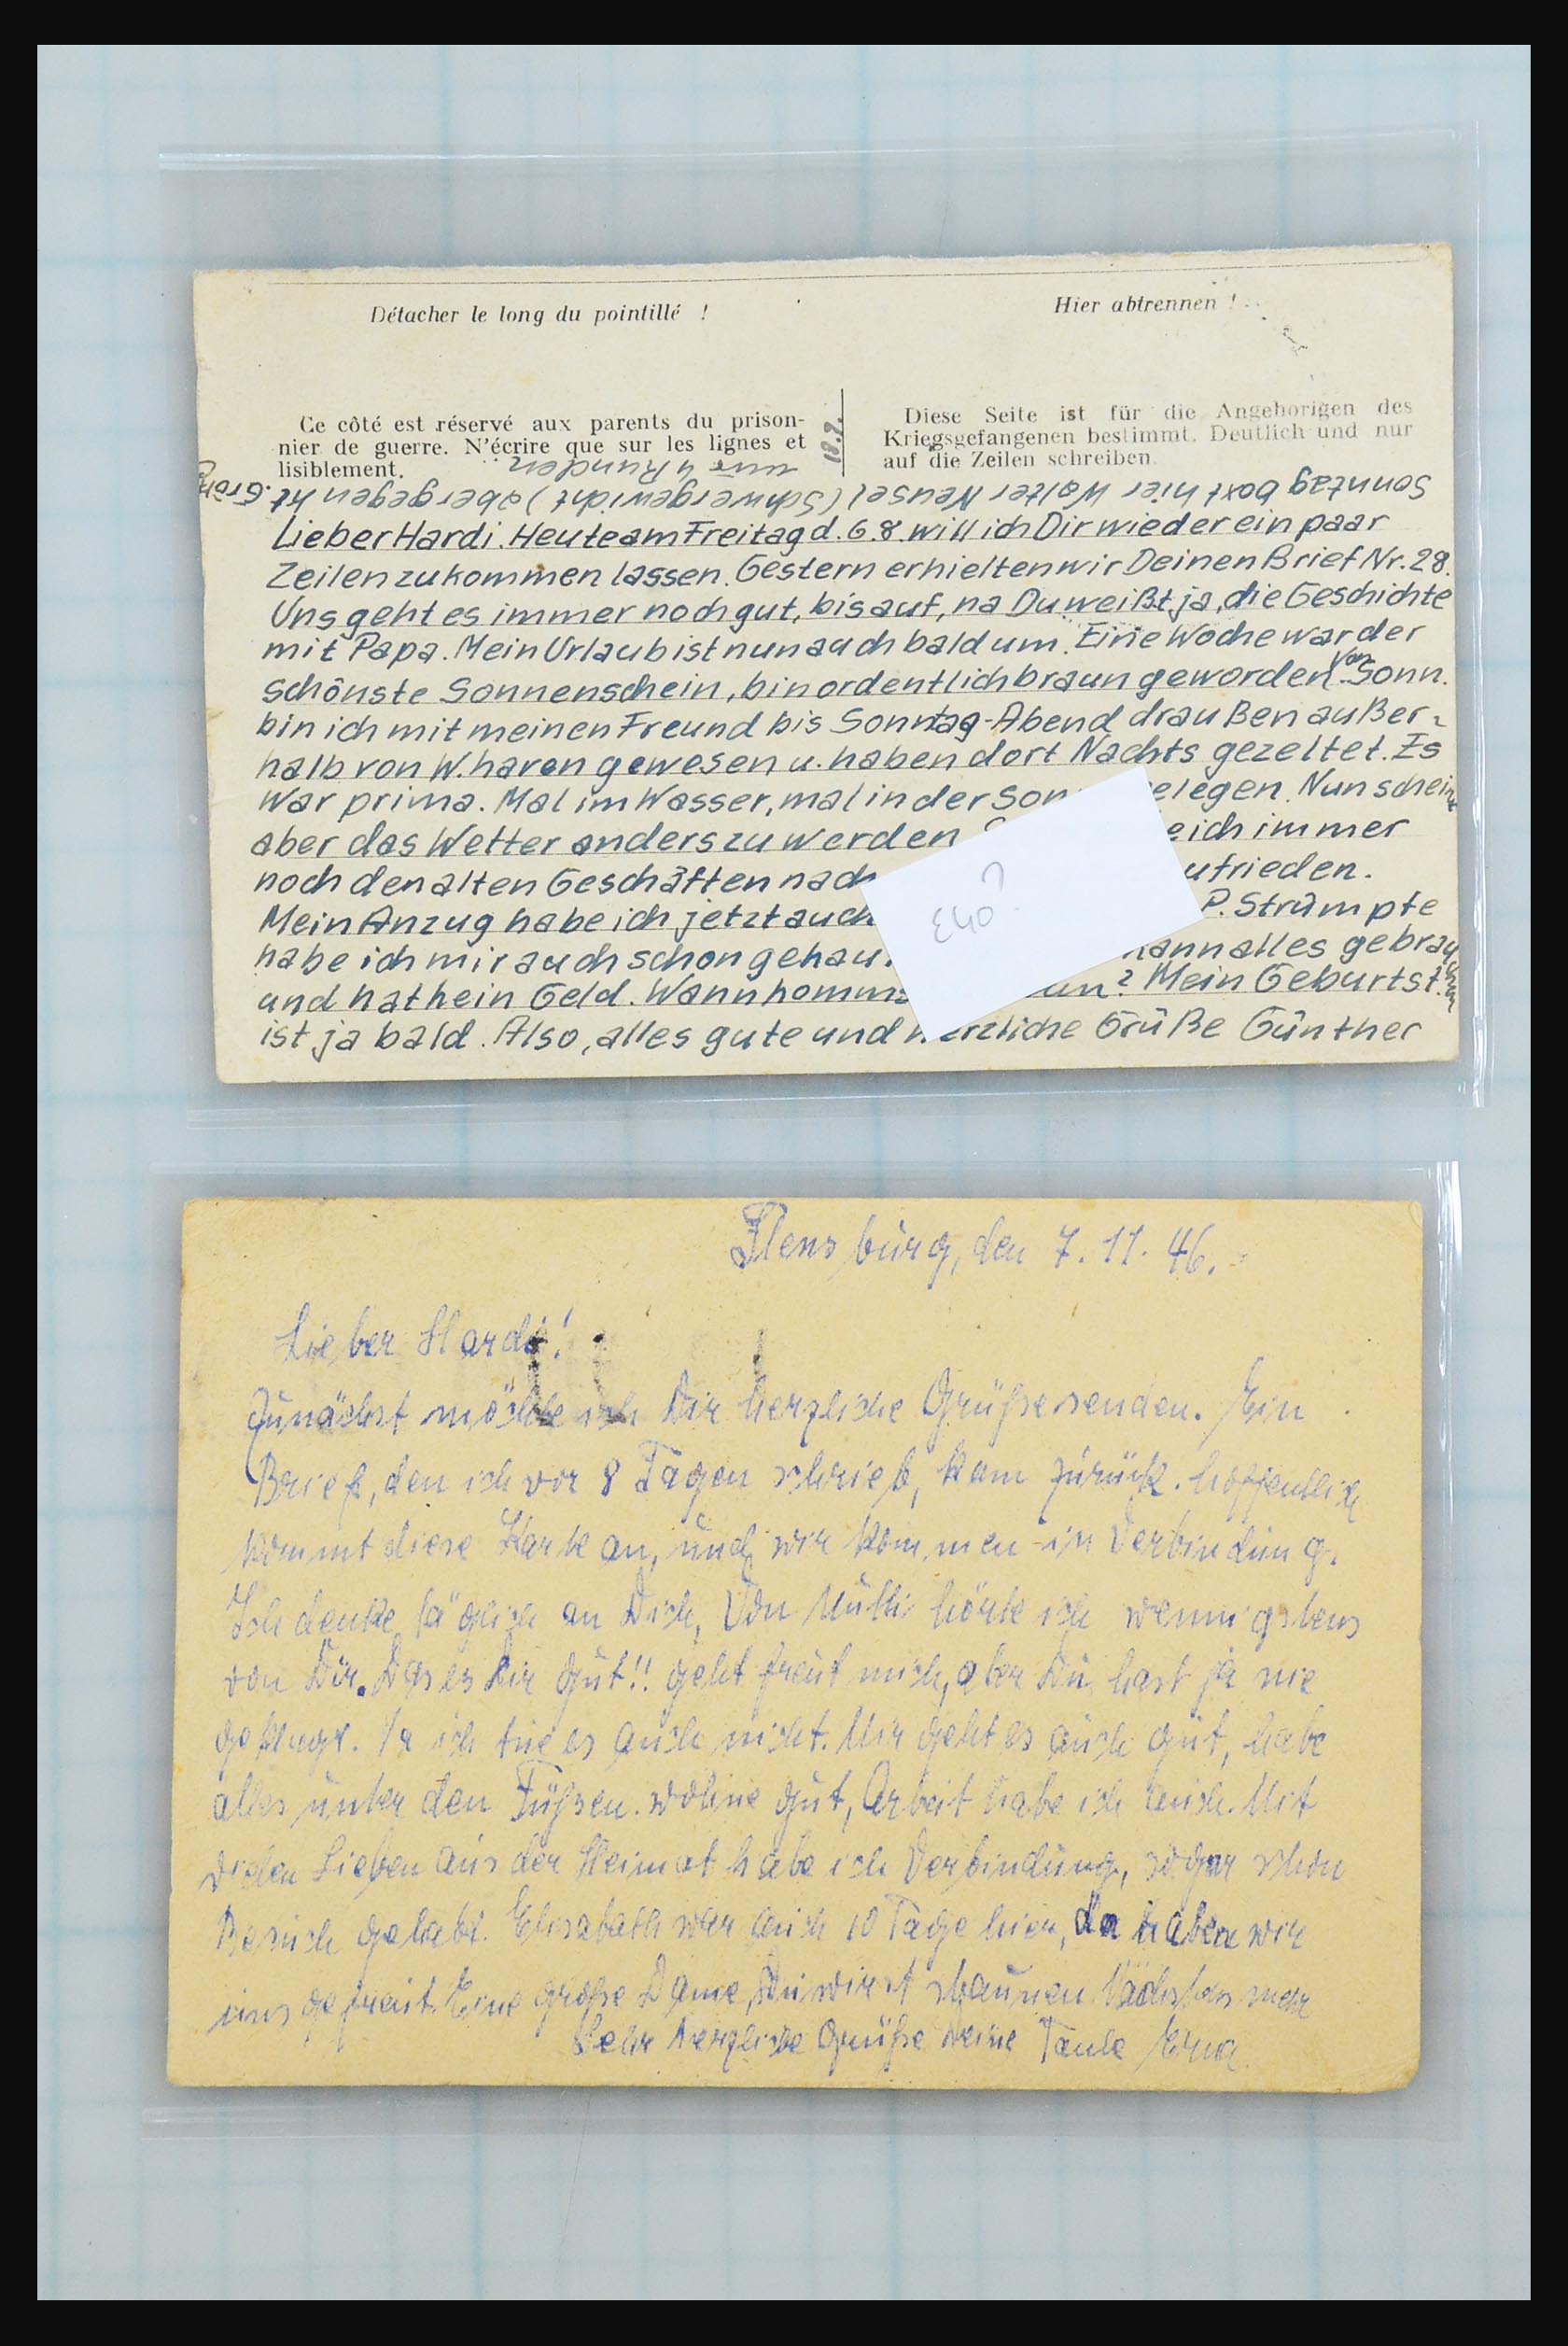 Détacher le long du pointillé !
Hier abtrennen !
Ce côté est réservé aux parents du prison-
nier de guerre. N'écrire que sur les lignes et
lisiblement.
Diese Seite ist für die Angehörigen des
Kriegsgefangenen bestimmt. Deutlich und nur
auf die Zeilen schreiben.
Sonntag boxt hier Walter Neusel (Schwergewicht) aber gegen
nur 4 Runden
Lieber Hardi. Heute am Freitag d. 6.8. will ich Dir wieder ein paar
Zeilen zukommen lassen. Gestern erhielten wir Deinen Brief Nr. 28.
Uns geht es immer noch gut, bis auf, na Du weißt ja, die Geschichte
mit Papa. Mein Urlaub ist nun auch bald um. Eine Woche war der
schönste Sonnenschein, bin ordentlich braun geworden. Von Sonn.
bin ich mit meinen Freund bis Sonntag-Abend draußen außer-
halb von W.haven gewesen u. haben dort Nachts gezeltet. Es
War prima. Mal im Wasser, mal in der Son elegen. Nun scheint
aber das Wetter anders zu werden eich immer
noch den alten Geschäften nach ufrieden.
Mein Anzug habe ich jetzt auch P. Strümpfe
habe ich mir auch schon gekau. kann alles gebrauchen
und hat kein Geld. Wann komms un? Mein Geburtst.
ist ja bald. Also, alles gute und herzliche Grüße Günther
Flensburg, den 7.11.46.
Lieber Hardi!
Zunächst möchte ich Dir herzliche Grüße senden. Ein
Brief, den ich vor 8 Tagen schrieb, kam zurück. hoffentlich
kommt diese Karte an, und wir kommen in Verbindung.
Ich denke täglich an Dich, Von Mutti hörte ich wenigstens
von Dir. Das es Dir gut!! geht freut mich, aber Du hast ja nie
geklagt. Ja ich tue es auch nicht. Mir geht es auch gut, habe
alles unter den Füßen. wohne gut, Arbeit habe ich auch. Mit
vielen Lieben aus der Heimat habe ich Verbindung, sogar schon
Besuch gehabt. Elisabeth war auch 10 Tage hier, da haben wir
uns gefreut. Eine große Dame, Du wirst staunen. Nächstes mehr
Sehr herzliche Grüße Deine Tante Erna